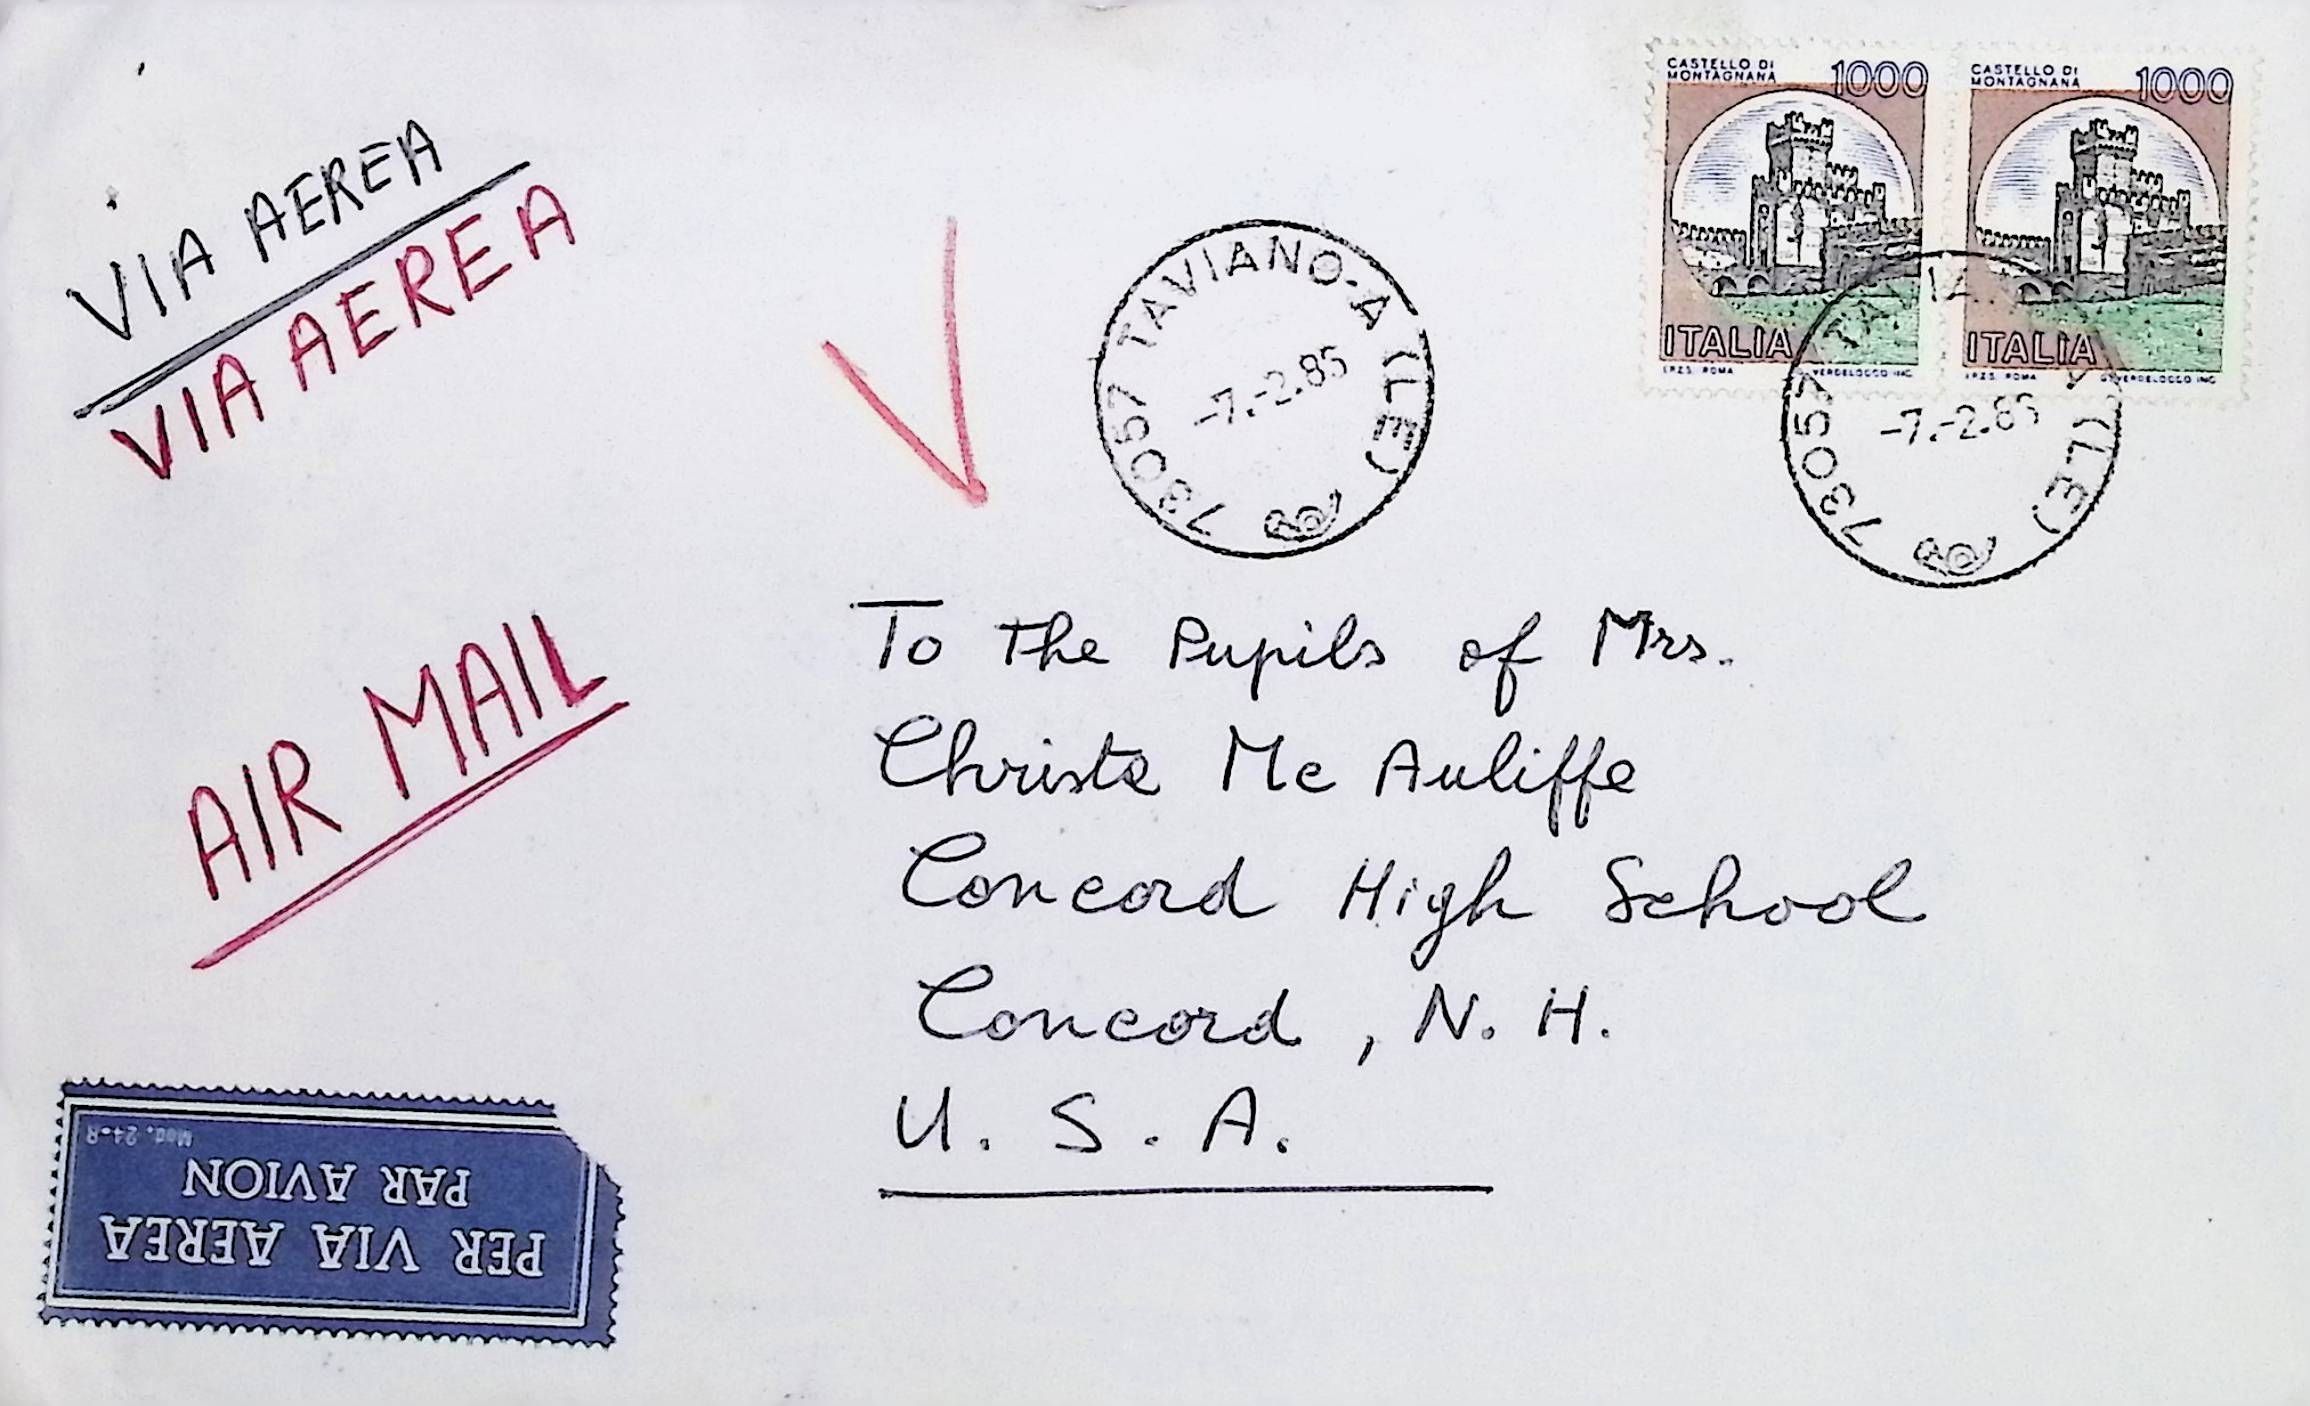 VIA AEREA
VIA AEREA
AIR MAIL
CASTELLO DI
MONTAGNANA
1000
ITALIA
I.P.Z.S. ROMA
VERGELOCCO INC.
CASTELLO DI
MONTAGNANA
1000
ITALIA
I.P.Z.S. ROMA
VERGELOCCO INC.
73057 TAVIANO-A (LE)
-7.-2.85
73057 TA (LE)
-7.-2.85
To the Pupils of Mrs.
Christa Mc Auliffe
Concord High School
Concord, N. H.
U. S. A.
PER VIA AEREA
PAR AVION
Mod. 24-R